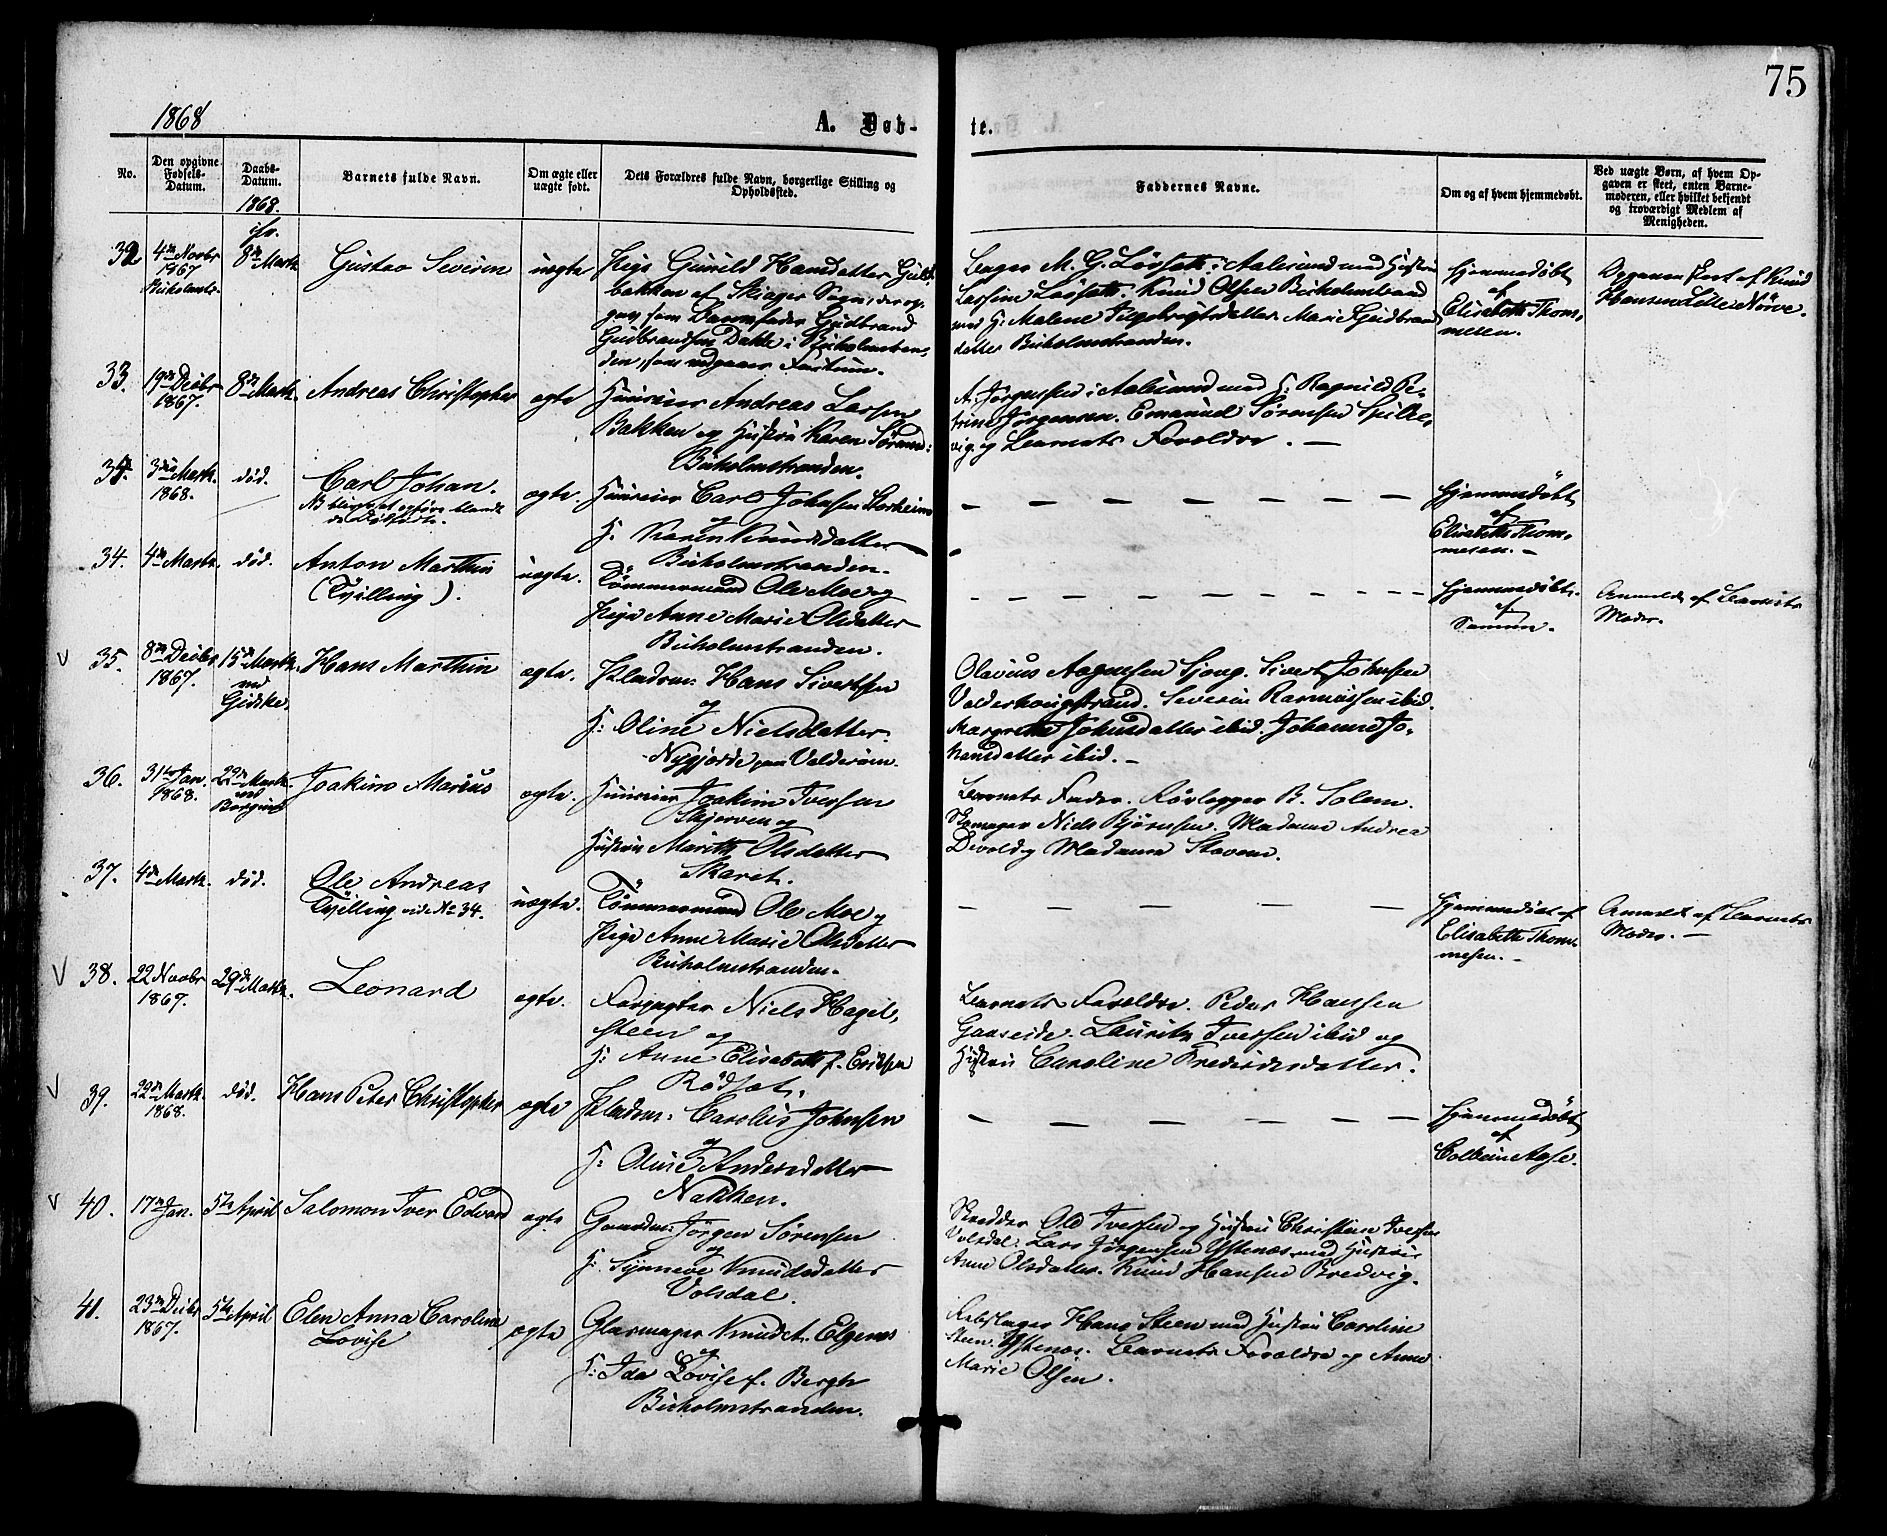 75
1868
A. Døb-
te.
No.
Den opgivne Fødsels-Datum.
Daabs-Datum.
1868.
Barnets fulde Navn.
Om ægte eller uægte født.
Dets Forældres fulde Navn, borgerlige Stilling og Opholdssted.
Faddernes Navne.
Om og af hvem hjemmedøbt.
Ved uægte Børn, af hvem Opgaven er skeet, enten Barnemoderen, eller hvilket bekjendt og troværdigt Medlem af Menigheden.
32
4de Novbr
1867
8de Marts
Gustav Severin
uægte
Pige Gunild Hansdatter Guld-
bakken af Skiager Sogn; der op-
gav som Barnefader Gudbrand
Gudbrandsen Dahle i Buholmstran-
den, som
M. G. Løvseth i Aalesund med Hustru
Løvseth. Knud Olsen Buholmstrand
med H: Malene
datter Buholmstranden.
Hjemmedøbt
af
Elisabeth Thom-
mesen.
Opgaven skeet af Knud
Hansen Lille Nørve.
33.
19de Decbr
1867.
8de Marts.
Andreas Christopher
ægte
Huuseier Andreas Larsen
Bakken og Hustru Karen
Buholmstranden.
A. Jørgensen i Aalesund med H: Ragnild Pe-
trine Jørgensen. Emanuel Sørensen Spille-
vig og Barnets Forældre. —
3die Marts.
1868.
død.
Carl Johan.
ægte.
Huuseier Carl Johnsen Storheim
og
H. Karen Knudsdatter
Buholmstranden.
Hjemmedøbt
af
Elisabeth Thom-
mesen. —
34.
4de Marts.
død.
Anton Marthin
(Tvilling).
uægte.
Tømmermand Ole Moe og
Pige Anne Marie Olsdatter
Buholmstranden.
Hjemmedøbt.
af
Samme.
Anmeldt af Barnets
Moder.
35.
8de Decbr
1867.
15de Marts.
ved
Gidske.
Hans Marthin
ægte.
Pladsm: Hans Sivertsen
og
H: Oline Nielsdatter.
Nygjorde paa Valderøen.
Olavus Aagesen Sjong. Sivert Johnsen
Valderhougstrand. Severin Rasmussen ibid.
Margrethe Johnsdatter ibid. Johanne Jo-
hansdatter ibid. —
36.
31te Jan.
1868.
22de Marts.
ved
Borgund
Joakim Marius
ægte.
Huuseier Joakim Iversen
Skjerven og
Hustru Marith Olsdatter
Skaret.
Barnets Fader. B. Solem.
Skomager Niels Bjørnsen. Madame Andrea
Devold og Madame Stavem.
37.
4de Marts.
død.
Ole Andreas
Tvilling vide No 34.
uægte.
Tømmermand Ole Moe og
Pige Anne Marie Olsdatter
Buholmstranden.
Hjemmedøbt af
Elisabeth Thom-
mesen. —
Anmeldt af Barnets
Moder. —
38.
22 Novbr
1867.
29de Marts.
Leonard
ægte.
Forpagter Niels Hagel-
steen og
H: Anne Elisabeth f. Eriksen
Rødsæt.
Barnets Forældre. Peder Hansen
Gaaseide. Lauritz Iversen ibid og
Hustru Caroline Fredriksdatter.
39.
22de Marts.
1868.
død.
Hans Peter Christopher
ægte
Pladsm: Carolus Johnsen
og
H: Oline Andersdatter
Nakken.
Hjemmedøbt
af
40.
17de Jan.
5te April
Salomon Iver Edvard
ægte
Gaardm: Jørgen Sørensen
og
H: Synneve Knudsdatter
Volsdal.
Skredder Ole Iversen og Hustru Christine Iversen
Volsdal. Lars Jørgensen Ystenæs med Hustru
Anne Olsdatter. Knud Hansen Bredvig.
41.
23de Decbr
1867.
5te April
Elen Anna Caroline
Lovise
ægte
Glasmager Knud Elgenes
og
H: Ida Lovise f. Bergh
Buholmstranden.
Rebslager Hans Steen med Hustru Caroline
Steen Ystenæs. Barnets Forældre og Anne
Marie Olsen.